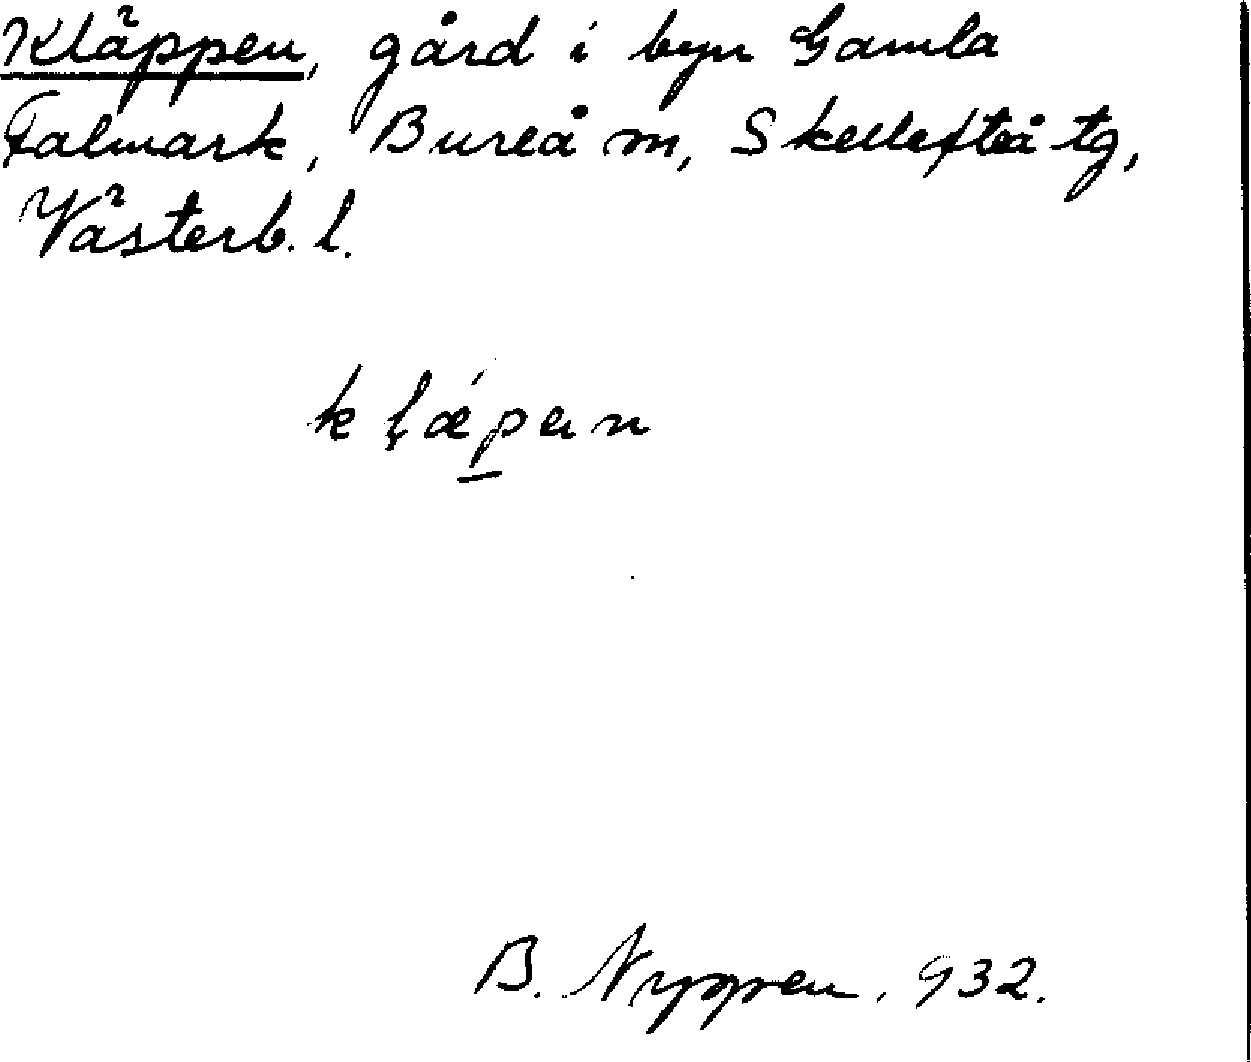 Kläppen, gård i byn Gamla
Falmark, Bureå m, Skellefteå tg,
Västerb. l.
B. Nygren. 932.